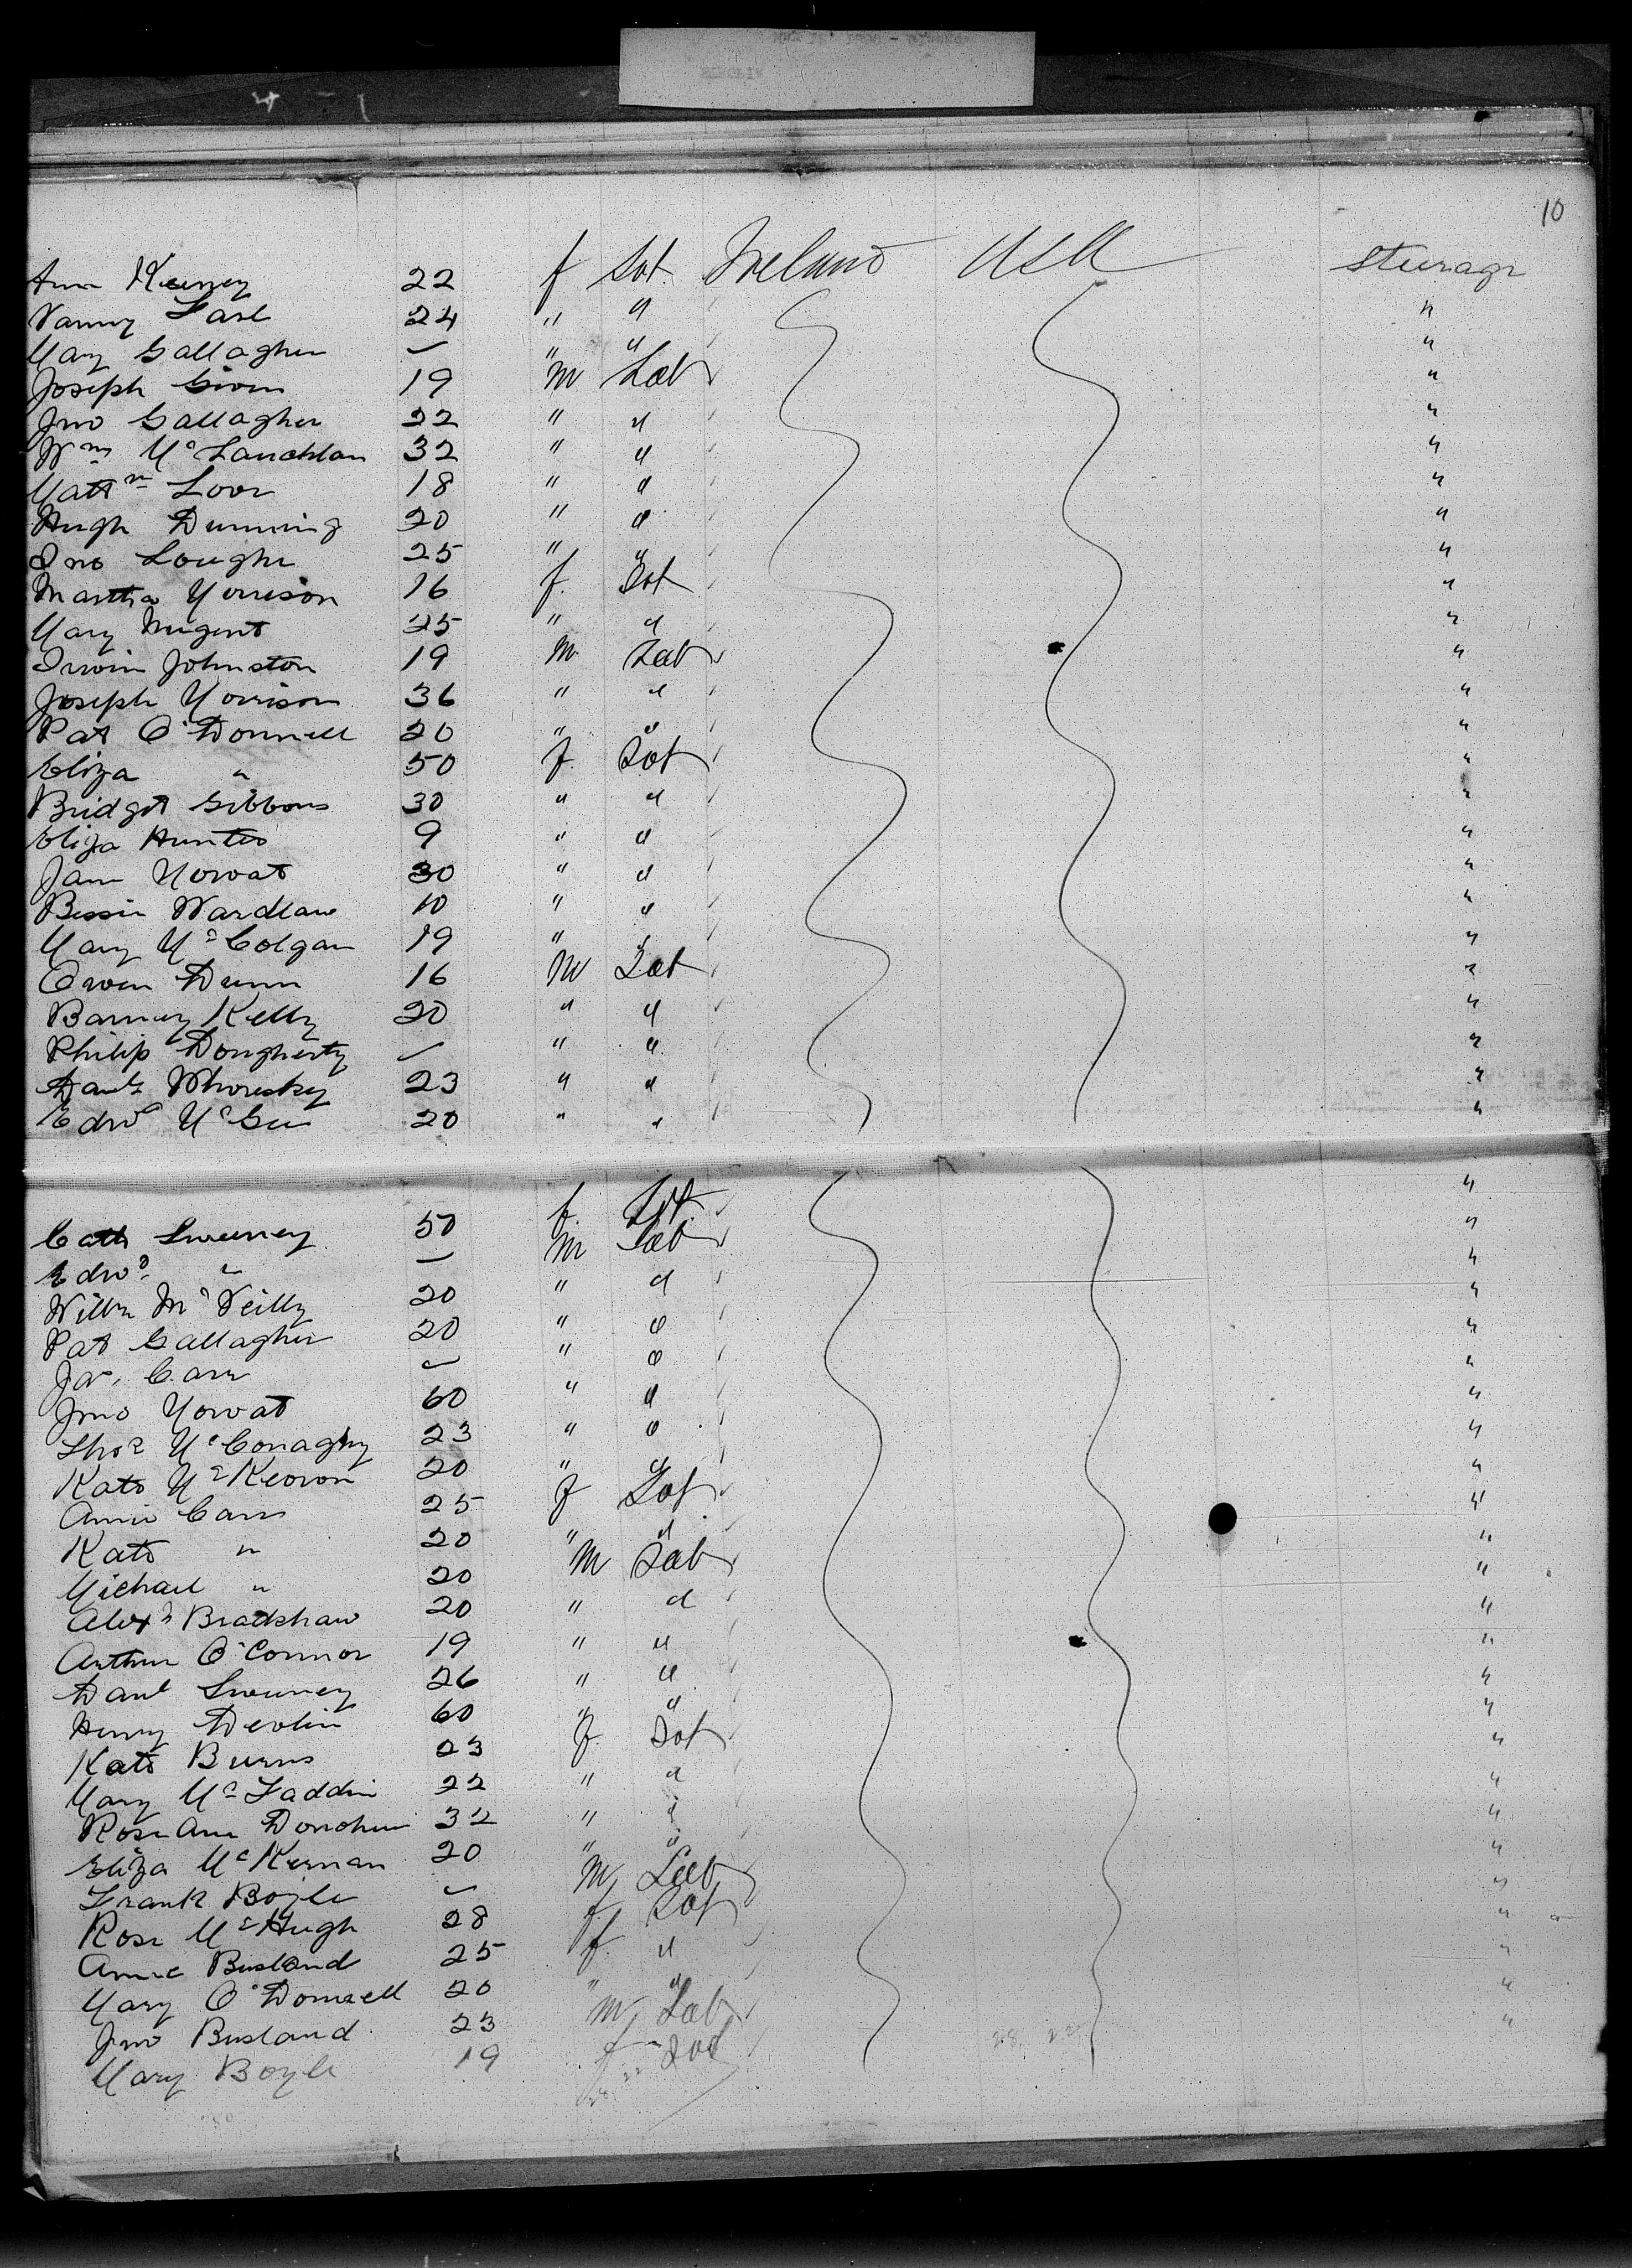 10
Ann Keeney 22 f Sot. Ireland USA Steerage
Nanny Earl 24 " " "
Mary Gallagher — " " "
Joseph Given 19 M Lab "
Jno Gallagher 22 " " "
Wm McLauchlan 32 " " "
Mattw Love 18 " " "
Hugh Dunning 20 " " "
Jno Loughr 25 " " "
Martha Morrison 16 f. Sot "
Mary Nugent 25 " " "
Irwin Johnston 19 M Lab "
Joseph Morrison 36 " " "
Pat O'Donnell 20 " " "
Eliza " 50 f Sot "
Bridget Gibbons 30 " " "
Eliza Hunter 9 " " "
Jane Mowat 30 " " "
Bessie Wardlaw 10 " " "
Mary McColgan 19 " " "
Owen Dunn 16 M Lab "
Barney Kelly 20 " " "
Philip Dougherty — " " "
Danl Whoriskey 23 " " "
Edwd McGee 20 " " "
Cath Sweeney 50 f. Sot. "
Edwd. " — M Lab "
Willm McNeilly 20 " " "
Pat Gallagher 20 " " "
Jas. Carr — " " "
Jno Mowat 60 " " "
Thos McConaghy 23 " " "
Kate McKeown 20 " " "
Annie Carr 25 f Sot "
Kate " 20 " " "
Michael " 20 M Lab "
Alexr Bradshaw 20 " " "
Arthur O'Connor 19 " " "
Danl Sweeney 26 " " "
Henry Devlin 60 " " "
Kate Burns 23 f Sot "
Mary McFaddin 22 " " "
Rose Ann Donohue 32 " " "
Eliza McKernan 20 " " "
Frank Boyle — M Lab "
Rose McHugh 28 f Sot "
Annie Busland 25 f " "
Mary O'Donnell 20 " " "
Jno Busland 23 M Lab "
Mary Boyle 19 f Sot
28 22